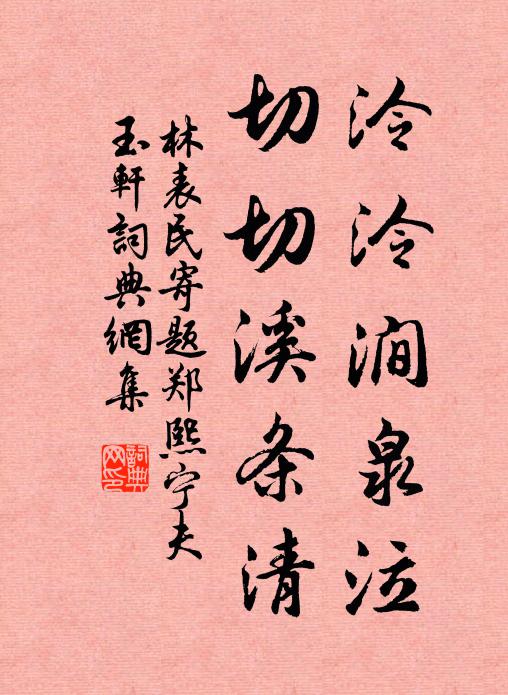 泠泠涧泉泣
切切溪条清
林表民寄题郑熙宁夫
玉軒詞典網集
詞典网印